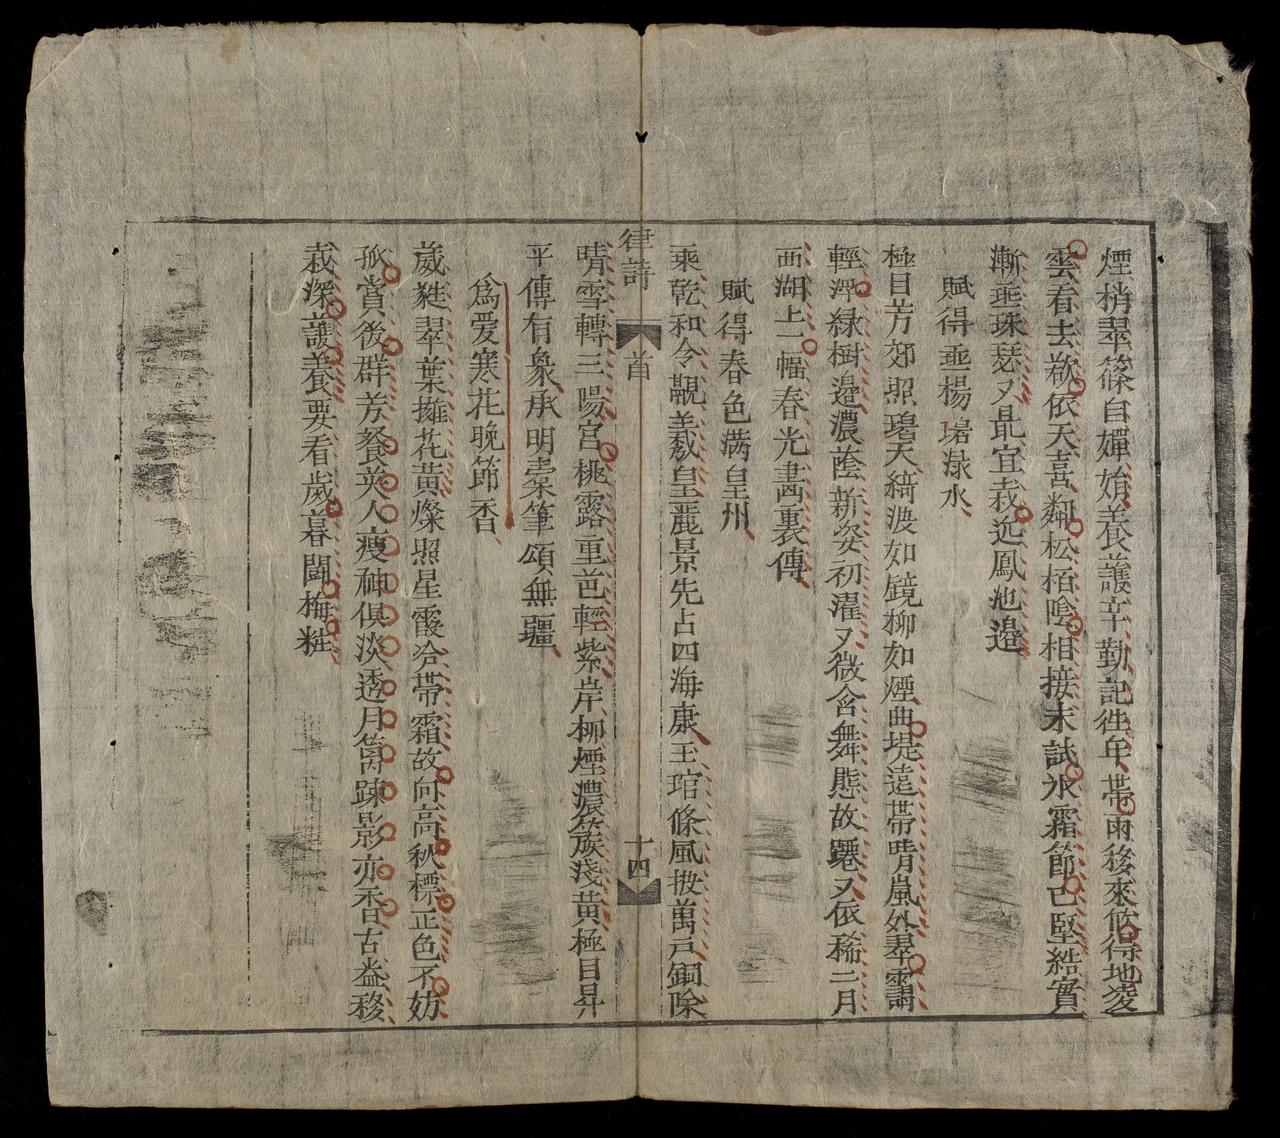 煙梢翠篠自嬋娟養護辛勤記徃年帶雨移來修得地凌
雲看去欲依天喜鄰松栢陰相接未試氷霜節已堅結實
漸垂珠瑟又最宜栽近鳳池邊
賦得垂楊堤渌水
極目芳郊照碧天綺波如鏡柳如煙曲堤遠帶晴嵐外翠靄
輕浮緑樹邉濃蔭新姿初濯又微含舞態故躚又依稀二月
西湖上一幅春光畵裏傳
賦得春色满皇州
乘乾和令覩羲皇麗景先占四海康玉琯條風披萬戸銅除
律詩
首
十四
晴雪轉三陽宮桃露重芭輕紫岸柳煙濃簇淺黄極目昇
平傳有象承明橐筆頌無疆
爲爱寒花晩節香
葳蕤翠葉擁花黄燦照星霞谷帶霜故向高秋標正色不妨
孤賞後群芳餐英人瘦神俱淡透月籬踈影亦香古盎移
栽深護養要看歲暮闘梅粧